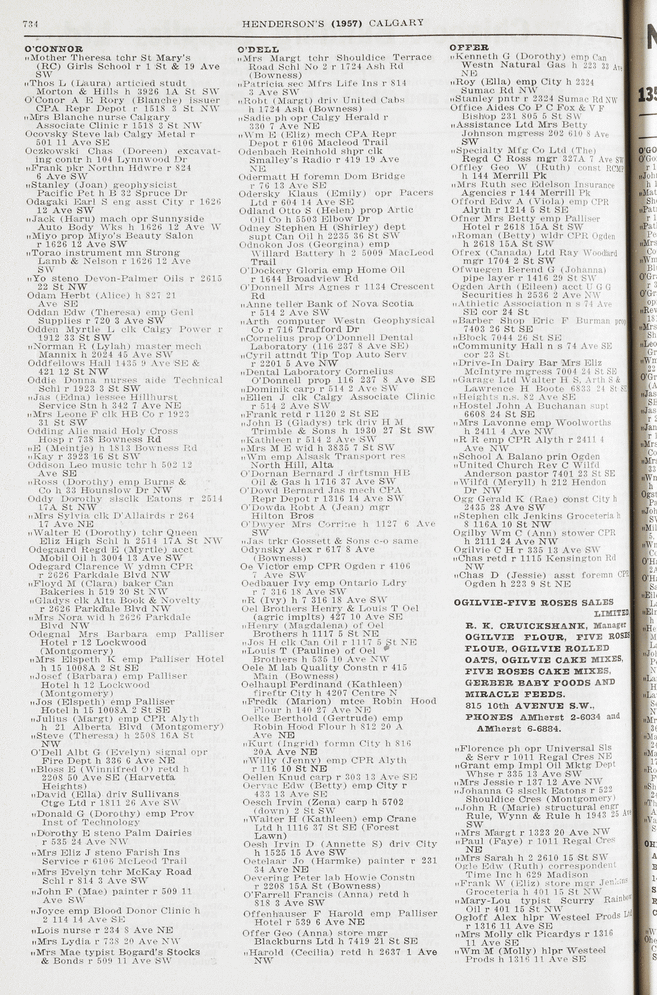 734
HENDERSON'S (1957) CALGARY
O'CONNOR
„Mother Theresa tchr St Mary's
(RC) Girls School r 1 St & 19 Ave
SW
„Thos L (Laura) articled studt
Morton & Hills h 3926 1A St SW
O'Conor A E Rory (Blanche) issuer
CPA Repr Depot r 1518 3 St NW
„Mrs Blanche nurse Calgary
Associate Clinic r 1518 3 St NW
Ocovsky Steve lab Calgy Metal r
501 11 Ave SE
Oczkowski Chas (Doreen) excavat-
ing contr h 104 Lynnwood Dr
„Frank pkr Northn Hdwre r 824
6 Ave SW
„Stanley (Joan) geophysicist
Pacific Pet h B 32 Spruce Dr
Odagaki Earl S eng asst City r 1626
12 Ave SW
„Jack (Haru) mach opr Sunnyside
Auto Body Wks h 1626 12 Ave W
„Miyo prop Miyo's Beauty Salon
r 1626 12 Ave SW
„Torao instrument mn Strong
Lamb & Nelson r 1626 12 Ave
SW
„Yo steno Devon-Palmer Oils r 2615
22 St NW
Odam Herbt (Alice) h 827 21
Ave SE
Oddan Edw (Theresa) emp Genl
Supplies r 720 3 Ave SW
Odden Myrtle L clk Calgy Power r
1912 33 St SW
„Norman R (Lylah) master mech
Mannix h 2024 45 Ave SW
Oddfellows Hall 1435 9 Ave SE &
421 12 St NW
Oddie Donna nurses aide Technical
Schl r 1923 3 St SW
„Jas (Edna) lessee Hillhurst
Service Stn h 342 7 Ave NE
„Mrs Leone F clk HB Co r 1923
31 St SW
Odding Alie maid Holy Cross
Hosp r 738 Bowness Rd
„E (Meintje) h 1813 Bowness Rd
„Kay r 3923 16 St NW
Oddson Leo music tchr h 502 12
Ave SE
„Ross (Dorothy) emp Burns &
Co h 33 Hounslow Dr NW
Oddy Dorothy slsclk Eatons r 2514
17A St NW
„Mrs Sylvia clk D'Allairds r 264
17 Ave NE
„Walter E (Dorothy) tchr Queen
Eliz High Schl h 2514 17A St NW
Odegaard Regd E (Myrtle) acct
Mobil Oil h 3004 13 Ave SW
Odegard Clarence W ydmn CPR
r 2626 Parkdale Blvd NW
„Floyd M (Clara) baker Can
Bakeries h 519 30 St NW
„Gladys clk Alta Book & Novelty
r 2626 Parkdale Blvd NW
„Mrs Nora wid h 2626 Parkdale
Blvd NW
Odegnal Mrs Barbara emp Palliser
Hotel r 12 Lockwood
(Montgomery)
„Mrs Elspeth K emp Palliser Hotel
h 15 1008A 2 St SE
„Josef (Barbara) emp Palliser
Hotel h 12 Lockwood
(Montgomery)
„Jos (Elspeth) emp Palliser
Hotel h 15 1008A 2 St SE
„Julius (Margt) emp CPR Alyth
h 21 Alberta Blvd (Montgomery)
„Steve (Theresa) h 2508 16A St
NW
O'Dell Albt G (Evelyn) signal opr
Fire Dept h 336 6 Ave NE
„Bloss E (Winnifred O) retd h
2208 50 Ave SE (Harvetta
Heights)
„David (Ella) driv Sullivans
Ctge Ltd r 1811 26 Ave SW
„Donald G (Dorothy) emp Prov
Inst of Technology
„Dorothy E steno Palm Dairies
r 535 24 Ave NW
„Mrs Eliz J steno Farish Ins
Service r 6106 McLeod Trail
„Mrs Evelyn tchr McKay Road
Schl r 814 3 Ave SW
„John F (Mae) painter r 509 11
Ave SW
„Joyce emp Blood Donor Clinic h
2 114 14 Ave SE
„Lois nurse r 234 8 Ave NE
„Mrs Lydia r 738 20 Ave NW
„Mrs Mae typist Bogard's Stocks
& Bonds r 509 11 Ave SW
O'DELL
„Mrs Margt tchr Shouldice Terrace
Road Schl No 2 r 1724 Ash Rd
(Bowness)
„Patricia sec Mfrs Life Ins r 814
3 Ave SW
„Robt (Margt) driv United Cabs
h 1724 Ash (Bowness)
„Sadie ph opr Calgy Herald r
330 7 Ave NE
„Wm E (Eliz) mech CPA Repr
Depot r 6106 Macleod Trail
Odenbach Reinhold shpr clk
Smalley's Radio r 419 19 Ave
NE
Odermatt H foremn Dom Bridge
r 76 13 Ave SE
Odersky Klaus (Emily) opr Pacers
Ltd r 604 14 Ave SE
Odland Otto S (Helen) prop Artic
Oil Co h 5503 Elbow Dr
Odney Stephen H (Shirley) dept
supt Can Oil h 2235 36 St SW
Odnokon Jos (Georgina) emp
Willard Battery h 2 5009 MacLeod
Trail
O'Dockery Gloria emp Home Oil
r 1644 Broadview Rd
O'Donnell Mrs Agnes r 1134 Crescent
Rd
„Anne teller Bank of Nova Scotia
r 514 2 Ave SW
„Arth computer Westn Geophysical
Co r 716 Trafford Dr
„Cornelius prop O'Donnell Dental
Laboratory (116 237 8 Ave SE)
„Cyril attndt Tip Top Auto Serv
r 2201 5 Ave NW
„Dental Laboratory Cornelius
O'Donnell prop 116 237 8 Ave SE
„Dominik carp r 514 2 Ave SW
„Ellen J clk Calgy Associate Clinic
r 514 2 Ave SW
„Frank retd r 1120 2 St SE
„John B (Gladys) trk driv H M
Trimble & Sons h 1930 27 St SW
„Kathleen r 514 2 Ave SW
„Mrs M E wid h 3835 7 St SW
„Wm emp Alsask Transport res
North Hill, Alta
O'Dornan Bernard J drftsmn HB
Oil & Gas h 1716 37 Ave SW
O'Dowd Bernard Jas mech CPA
Repr Depot r 1316 14 Ave SW
O'Dowda Robt A (Jean) mgr
Hilton Bros
O'Dwyer Mrs Corrine h 1127 6 Ave
SW
„Jas trkr Gossett & Sons c-o same
Odynsky Alex r 617 8 Ave
(Bowness)
Oe Victor emp CPR Ogden r 4106
7 Ave SW
Oedbauer Ivy emp Ontario Ldry
r 7 316 18 Ave SW
„R (Ivy) h 7 316 18 Ave SW
Oel Brothers Henry & Louis T Oel
(agric implts) 427 10 Ave SE
„Henry (Magdalena) of Oel
Brothers h 1117 5 St NE
„Jos H clk Can Oil r 1117 5 St NE
„Louis T (Pauline) of Oel
Brothers h 535 10 Ave NW
Oele M lab Quality Constn r 415
Main (Bowness)
Oelhaupl Ferdinand (Kathleen)
fireftr City h 4207 Centre N
„Fredk (Marion) mtce Robin Hood
Flour h 140 27 Ave NW
Oelke Berthold (Gertrude) emp
Robin Hood Flour h 812 20 A
Ave NW
„Kurt (Ingrid) formn City h 816
20A Ave NW
„Willy (Jenny) emp CPR Alyth
r 116 10 St NE
Oellen Knud carp r 303 13 Ave SE
Oervac Edw (Betty) emp City r
433 13 Ave SE
Oesch Irvin (Zena) carp h 5702
(down) 2 St SW
„Walter H (Kathleen) emp Crane
Ltd h 1116 37 St SE (Forest
Lawn)
Oesh Irvin D (Annette S) driv City
h 1525 15 Ave SW
Oetelaar Jo (Harmke) painter r 231
34 Ave NE
Oevering Peter lab Howie Constn
r 2208 15A St (Bowness)
O'Farrell Francis (Anna) retd h
818 3 Ave SW
Offenhauser F Harold emp Palliser
Hotel r 539 6 Ave NE
Offer Geo (Anna) store mgr
Blackburns Ltd h 7419 21 St SE
„Harold (Cecilia) retd h 2637 1 Ave
NW
OFFER
„Kenneth G (Dorothy) emp Can
Westn Natural Gas h 223 33 Ave
NE
„Roy (Ella) emp City h 2324
Sumac Rd NW
„Stanley pntr r 2324 Sumac Rd NW
Office Aides Co P C Fox & V F
Bishop 231 805 5 St SW
„Assistance Ltd Mrs Betty
Johnson mgress 202 610 8 Ave
SW
„Specialty Mfg Co Ltd (The)
Regd C Ross mgr 327A 7 Ave SW
Offley Geo W (Ruth) const RCMP
h 144 Merrill Pk
„Mrs Ruth sec Edelson Insurance
Agencies r 144 Merrill Pk
Offord Edw A (Viola) emp CPR
Alyth r 1214 5 St SE
Ofner Mrs Betty emp Palliser
Hotel r 2618 15A St SW
„Roman (Betty) wldr CPR Ogden
h 2618 15A St SW
Ofrex (Canada) Ltd Ray Woodland
mgr 1704 2 St SW
Ofwuegen Berend G (Johanna)
pipe layer r 1416 29 St SW
Ogden Arth (Eileen) acct U G G
Securities h 2536 2 Ave NW
„Athletic Association n s 74 Ave
SE cor 24 St
„Barber Shop Eric F Burman prop
7403 26 St SE
„Block 7044 26 St SE
„Community Hall n s 74 Ave SE
cor 23 St
„Drive-In Dairy Bar Mrs Eliz
McIntyre mgress 7004 24 St SE
„Garage Ltd Walter H S, Arth S &
Lawrence H Boote 6833 24 St SE
„Heights n.s. 82 Ave SE
„Hostel John A Buchanan supt
6608 24 St SE
„Mrs Lavonne emp Woolworths
h 2411 4 Ave NW
„R R emp CPR Alyth r 2411 4
Ave NW
„School A Balano prin Ogden
„United Church Rev C Wilfd
Anderson pastor 7401 23 St SE
„Wilfd (Meryll) h 212 Hendon
Dr NW
Ogg Gerald K (Rae) const City h
2435 28 Ave SW
„Stephen clk Jenkins Groceteria h
8 116A 10 St NW
Ogilby Wm C (Ann) stower CPR
h 2111 24 Ave NW
Ogilvie C H r 335 13 Ave SW
„Chas retd r 1115 Kensington Rd
NW
„Chas D (Jessie) asst foremn CPR
Ogden h 223 9 St NE
OGILVIE-FIVE ROSES SALES
LIMITED,
R. K. CRUICKSHANK, Manager
OGILVIE FLOUR, FIVE ROSES
FLOUR, OGILVIE ROLLED
OATS, OGILVIE CAKE MIXES,
FIVE ROSES CAKE MIXES,
GERBER BABY FOODS AND
MIRACLE FEEDS.
815 10th AVENUE S.W.,
PHONES AMherst 2-6034 and
AMherst 6-6884.
„Florence ph opr Universal Sls
& Serv r 1011 Regal Cres NE
„Grant emp Impl Oil Mktg Dept
Whse r 335 13 Ave SW
„Mrs Jessie r 137 12 Ave NW
„Johanna G slsclk Eatons r 522
Shouldice Cres (Montgomery)
„John R (Marie) structural engr
Rule, Wynn & Rule h 1943 25 Ave
SW
„Mrs Margt r 1323 20 Ave NW
„Paul (Faye) r 1011 Regal Cres
NE
„Mrs Sarah h 2 2610 15 St SW
Ogle Edw (Ruth) correspondent
Time Inc h 629 Madison
„Frank W (Eliz) store mgr Jenkins
Groceteria h 401 15 St NW
„Mary-Lou typist Scurry Rainbow
Oil r 401 15 St NW
Ogloff Alex hlpr Westeel Prods Ltd
r 1316 11 Ave SE
„Mrs Molly clk Picardys r 1316
11 Ave SE
„Wm M (Molly) hlpr Westeel
Prods h 1316 11 Ave SE